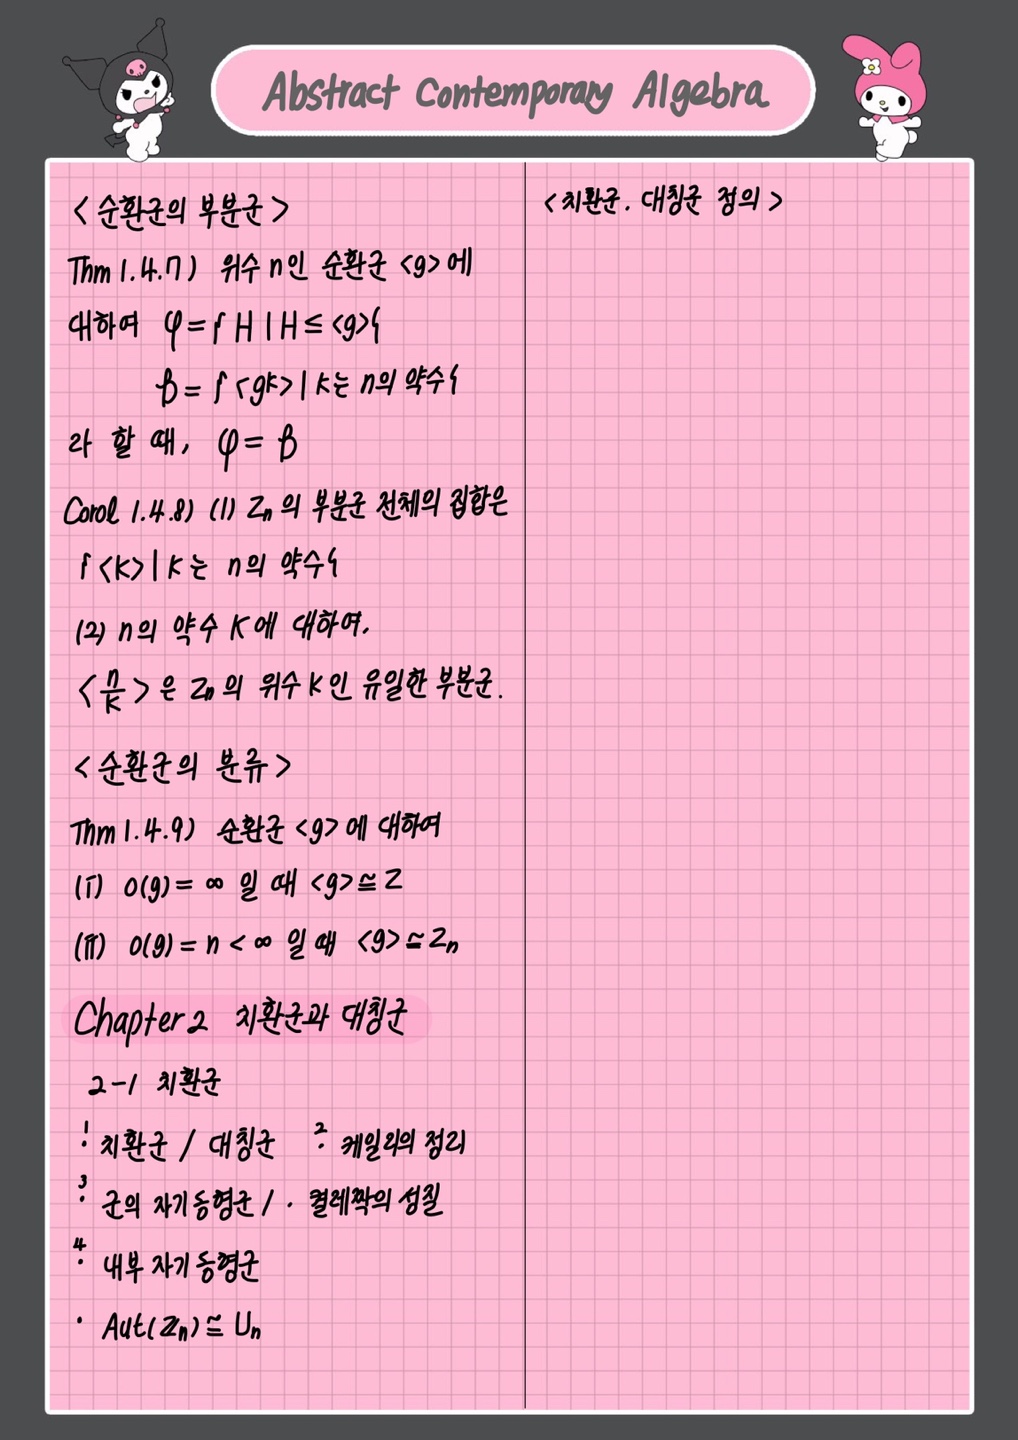 Abstract Contemporary Algebra
<순환군의 부분군>
Thm 1.4.7) 위수 n인 순환군 <g>에
대하여 φ = { H | H ≤ <g>}
β = { <gᵏ> | k는 n의 약수}
라 할 때, φ = β
Corol 1.4.8) (1) Zₙ의 부분군 전체의 집합은
{ <k> | k는 n의 약수}
(2) n의 약수 K에 대하여,
<n/k>은 Zₙ의 위수 K인 유일한 부분군.
<순환군의 분류>
Thm 1.4.9) 순환군 <g>에 대하여
(i) o(g) = ∞ 일 때 <g> ≅ Z
(ii) o(g) = n < ∞ 일 때 <g> ≃ Zₙ
Chapter 2 치환군과 대칭군
2-1 치환군
1 · 치환군 / 대칭군 2 · 케일리의 정리
3 · 군의 자기동형군 / · 켤레짝의 성질
4 · 내부 자기동형군
· Aut(Zₙ) ≅ Uₙ
<치환군. 대칭군 정의>